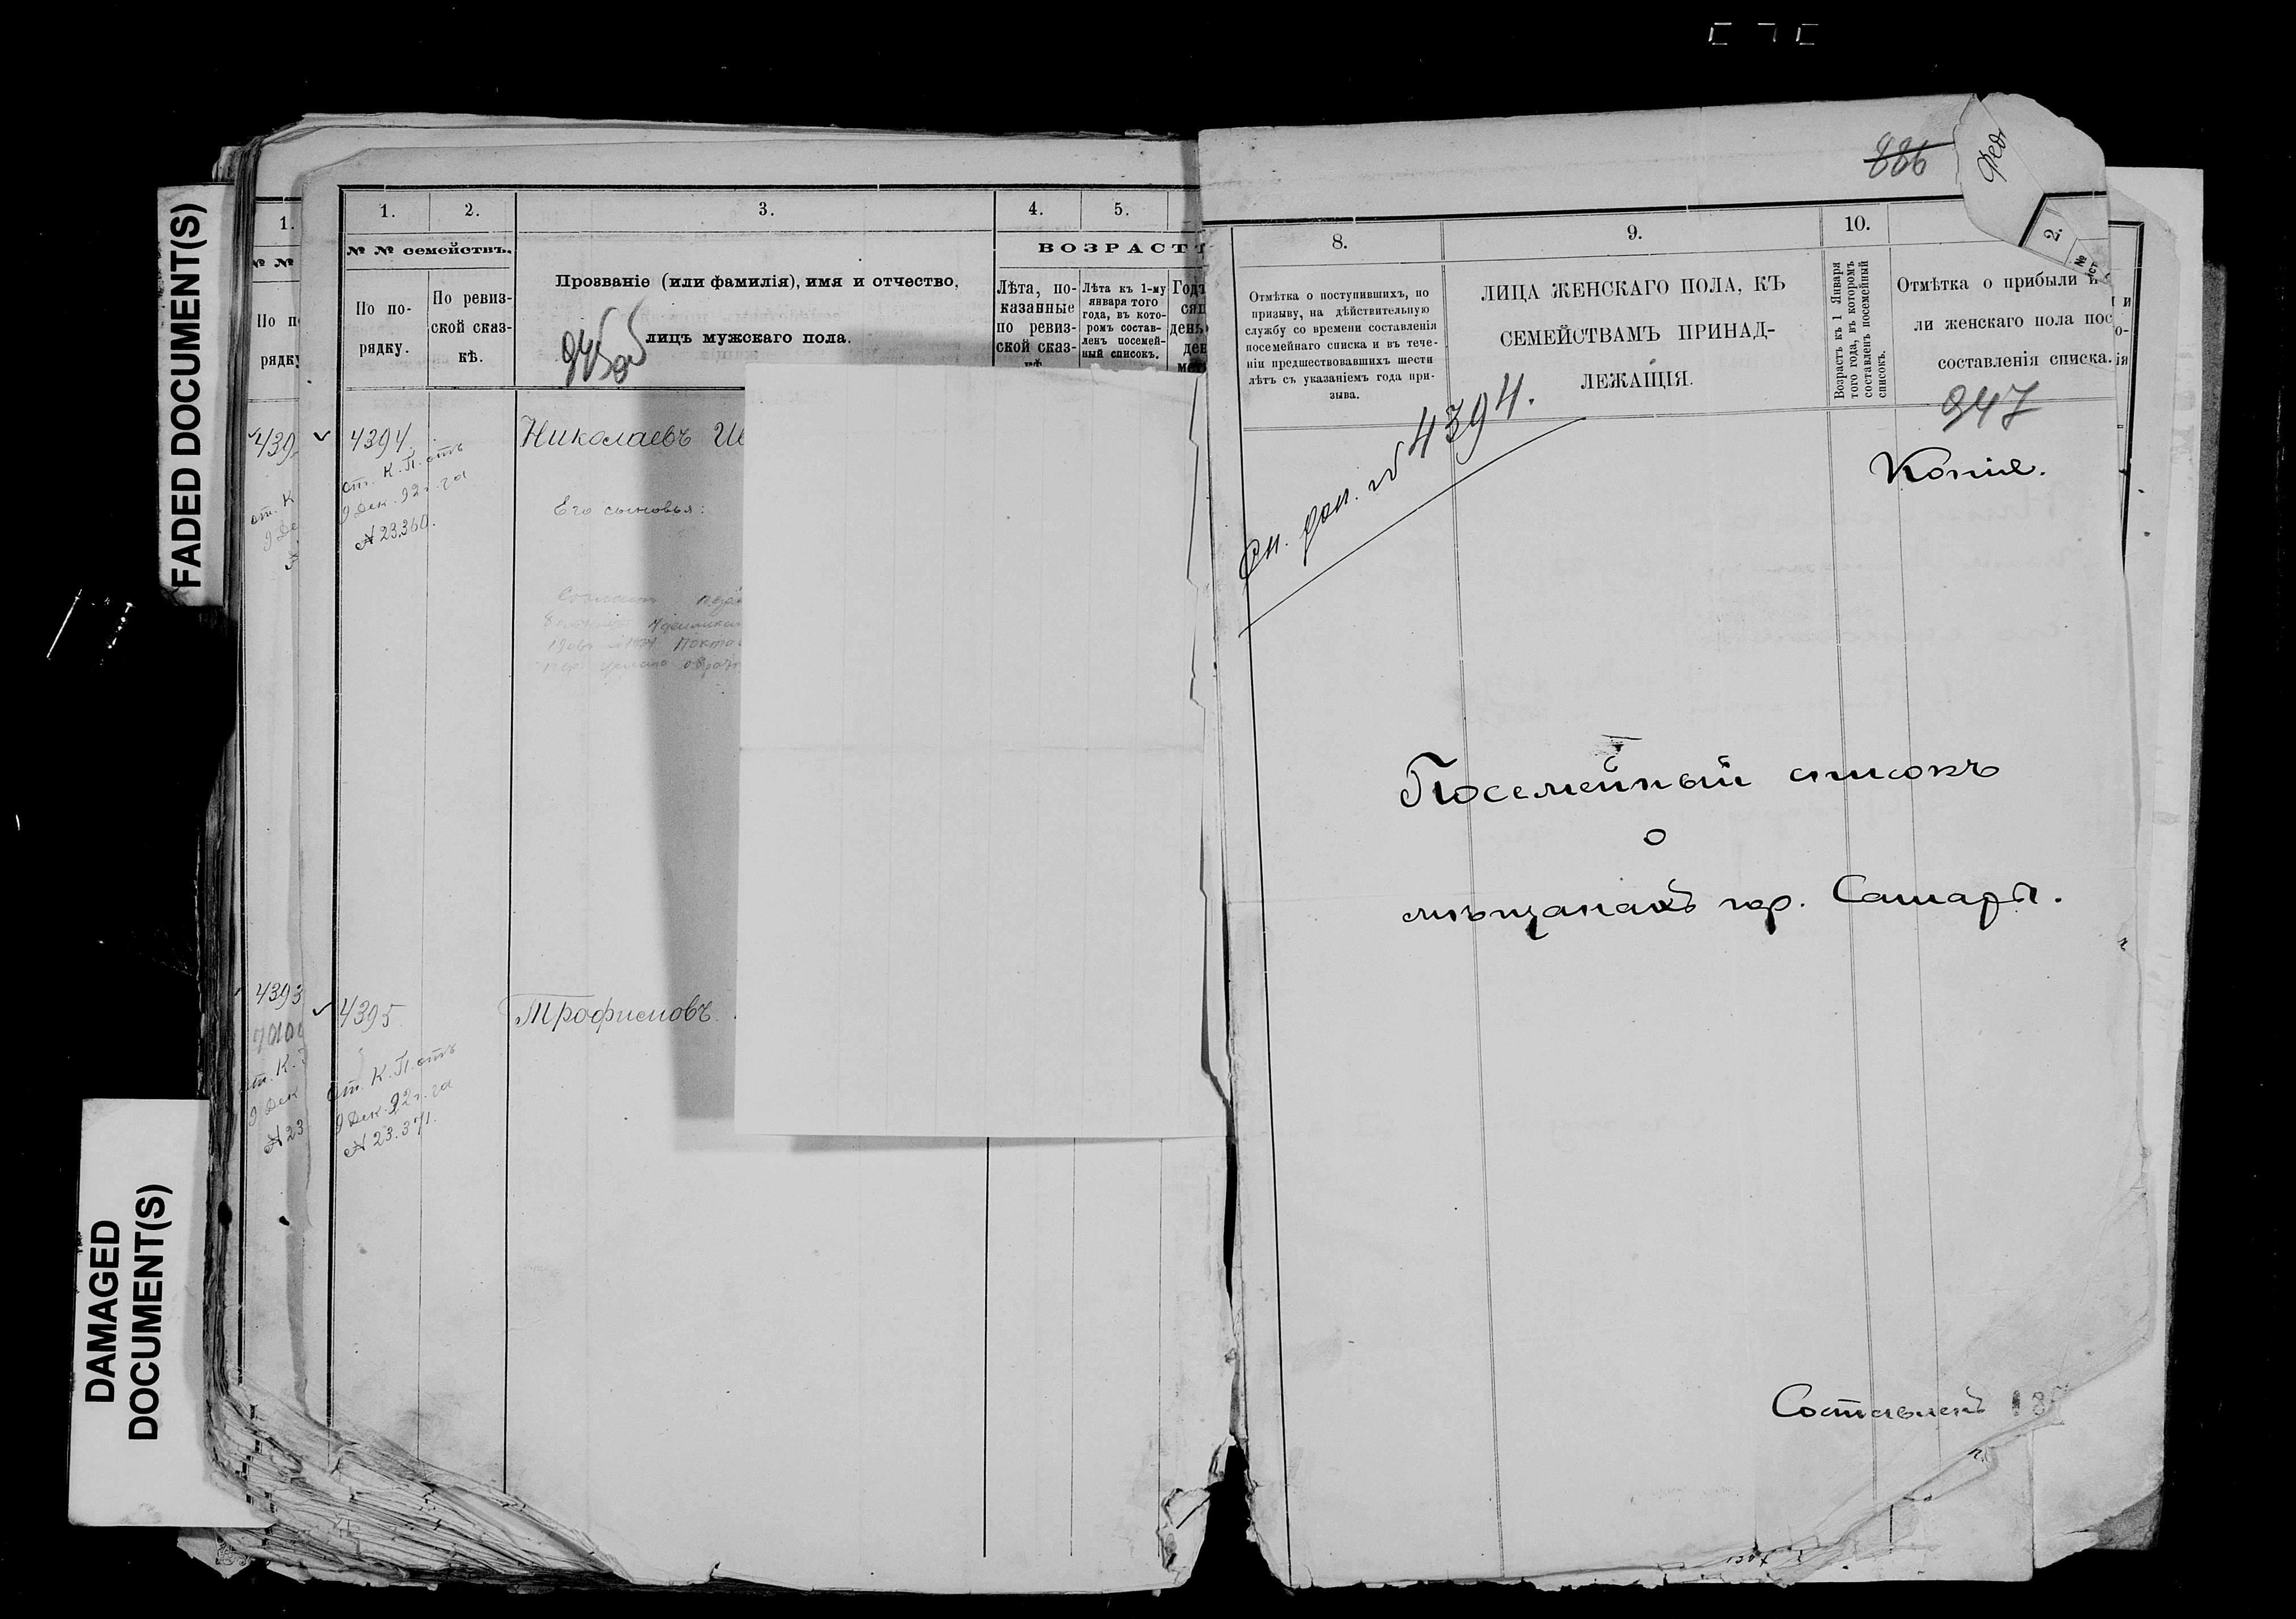 FADED DOCUMENT(S)
DAMAGED
DOCUMENT(S)
1.
№ №
По п
рядку
439
ст. К
9 Де
4393
ст. К.
9 Дек
№ 23
1. 2. 3. 4. 5.
№ № семействъ.
По по-
рядку.
По ревиз-
ской сказ-
кѣ.
Прозваніе (или фамилія), имя и отчество,
лицъ мужскаго пола.
ВОЗРАСТ
Лѣта, по-
казанные
по ревиз-
ской сказ-
Лѣта къ 1-му
января того
года, въ кото-
ромъ состав-
ленъ посемей-
ный списокъ.
4394.
ст. К. П. отъ
9 Дек. 92 г. за
№ 23,360.
Николаевъ Ив
Его сыновья:
4395
Трофимовъ
ст. К. П. отъ
9 Дек. 92 г. за
№ 23.371.
886
8. 9. 10.
Отмѣтка о поступившихъ, по
призыву, на дѣйствительную
службу со времени составленія
посемейнаго списка и въ тече-
ніи предшествовавшихъ шести
лѣтъ съ указаніемъ года при-
зыва.
ЛИЦА ЖЕНСКАГО ПОЛА, КЪ
СЕМЕЙСТВАМЪ ПРИНАД-
ЛЕЖАЩІЯ.
Возрастъ къ 1 Января
того года, въ которомъ
составленъ посемейный
списокъ.
Отмѣтка о прибыли и
ли женскаго пола пос
составленія списка.
2.
947
Сп. доп. № 4394.
Копія.
Посемейный списокъ
о
мѣщанахъ гор. Самары.
Составленъ 18